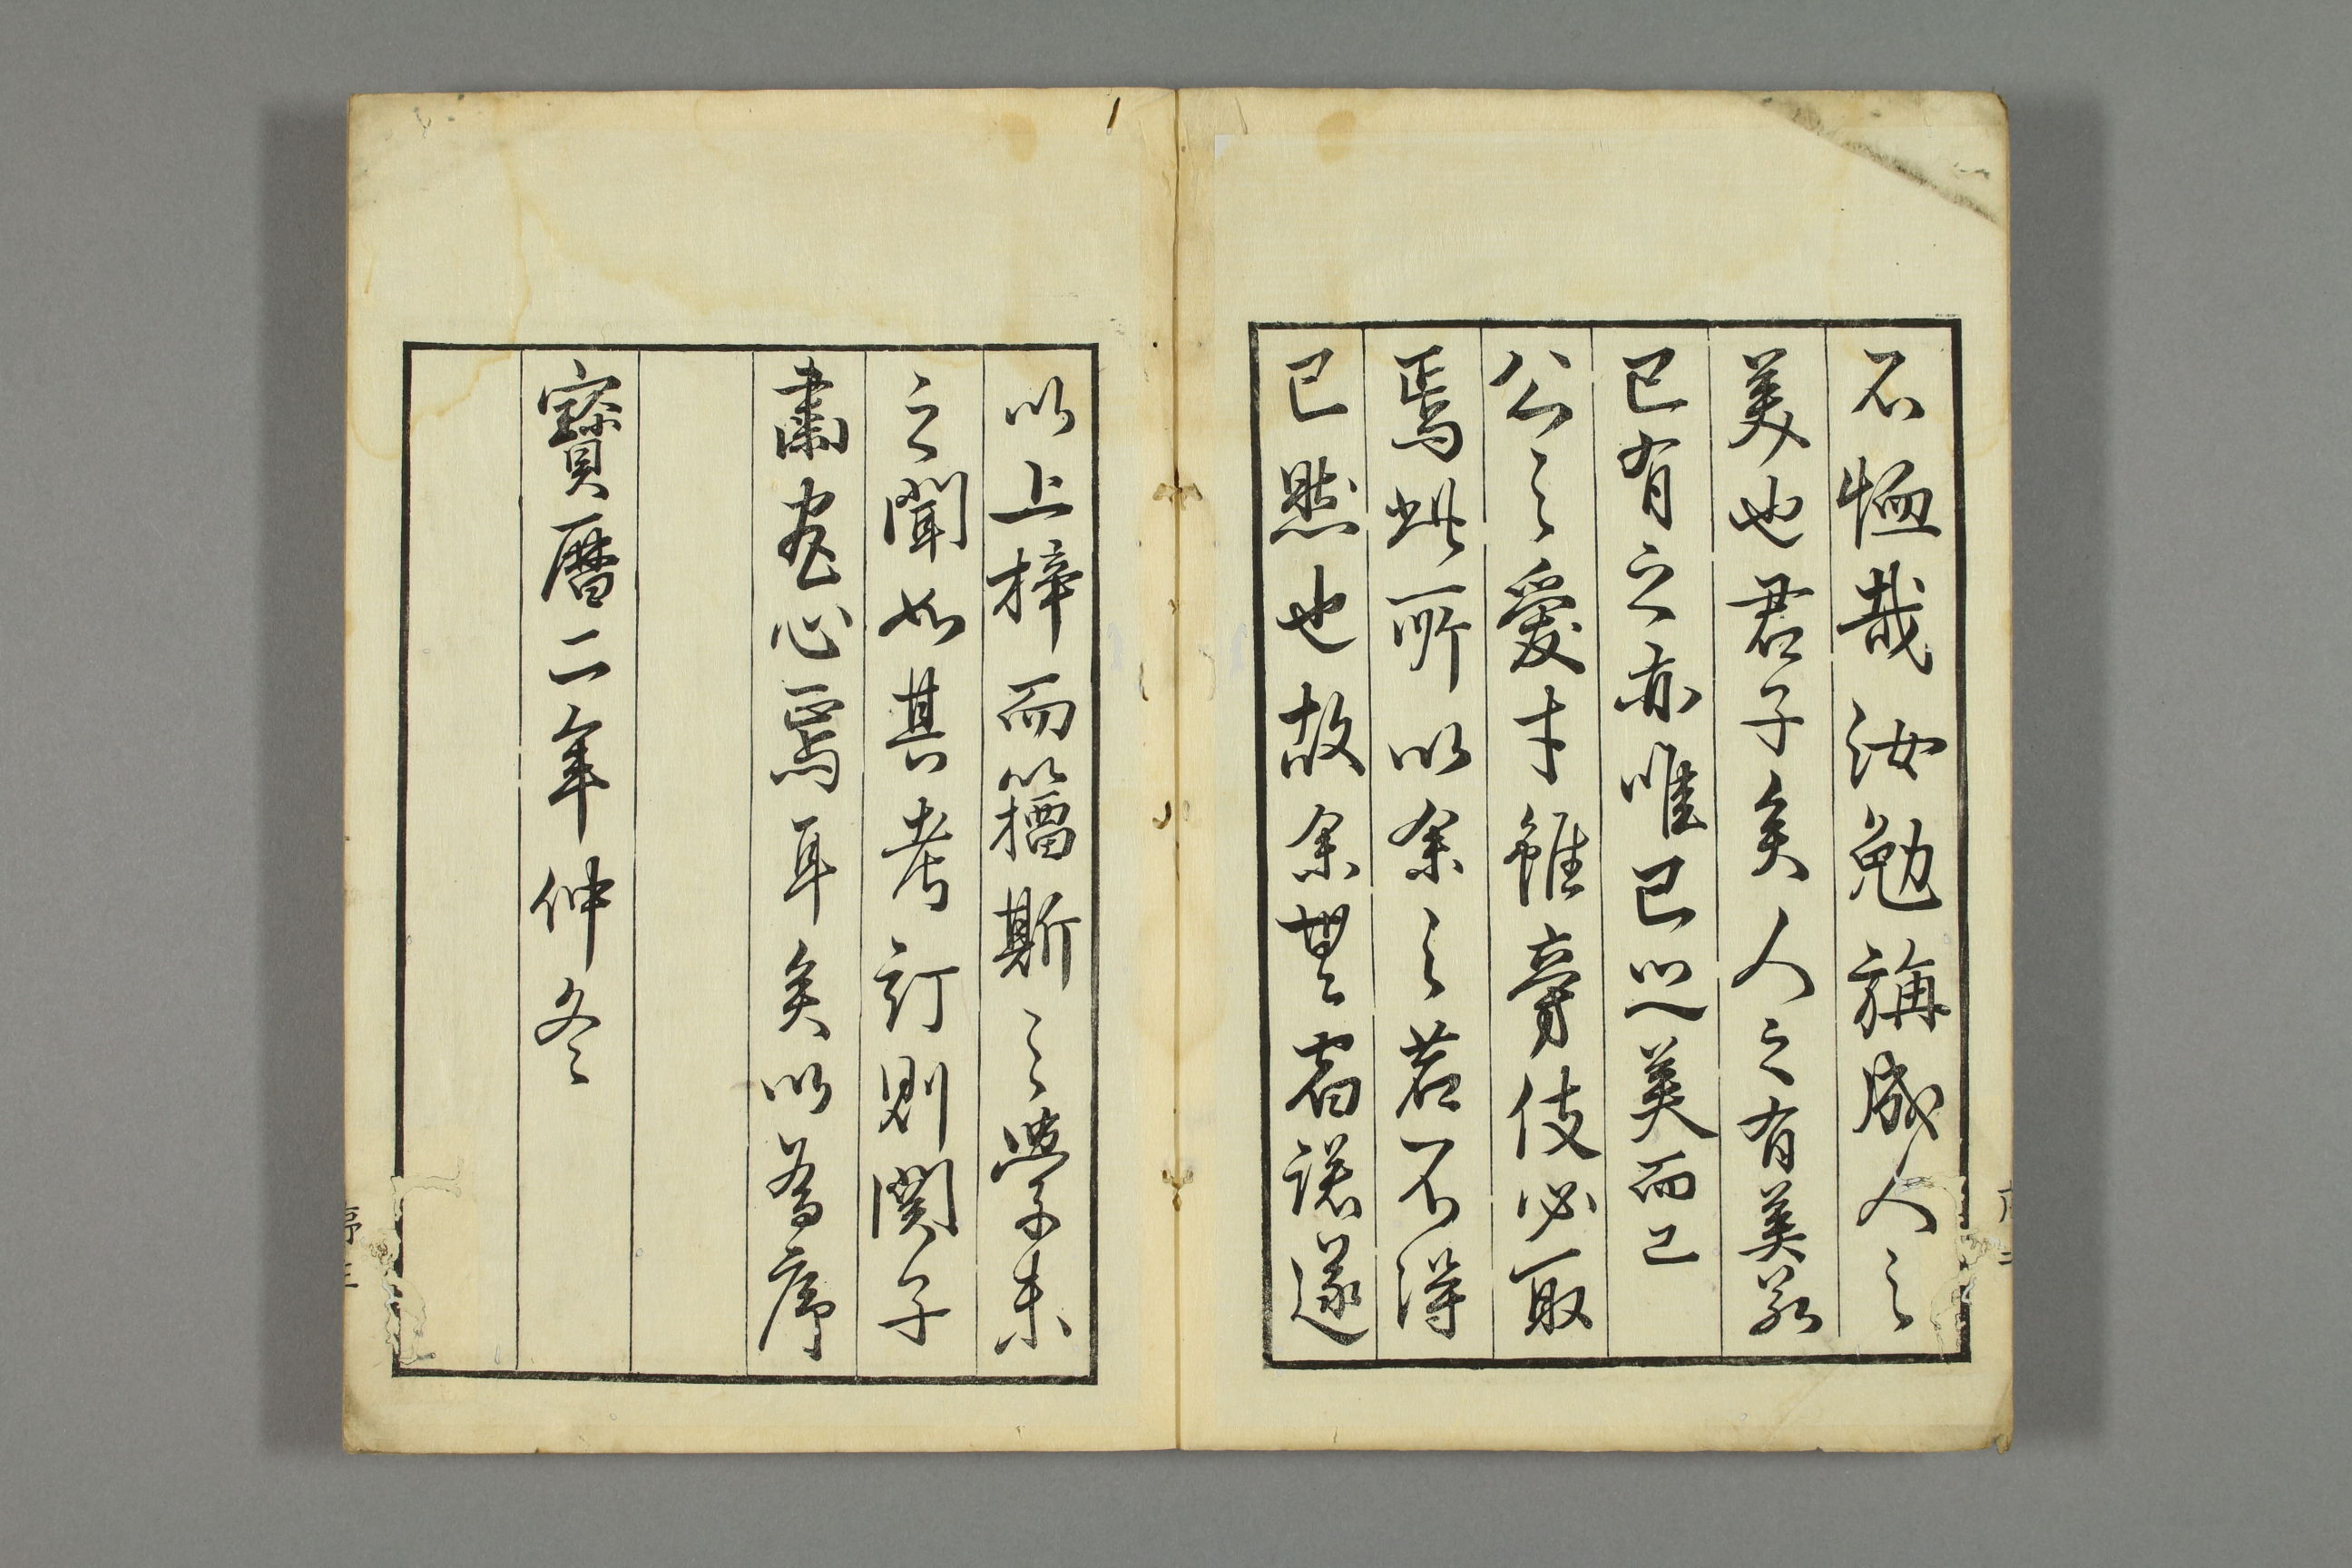 不恤哉汝勉旃成人之
美也君子矣人之有美若
已有之亦唯已以美而已
公之愛才雖旁伎必取
焉此所以余之若不得
已然也故余塁君諾遂
以上梓而籀斯之學未
之聞如其考訂則関子
肅盡心焉耳矣以為序
寶曆二年仲冬